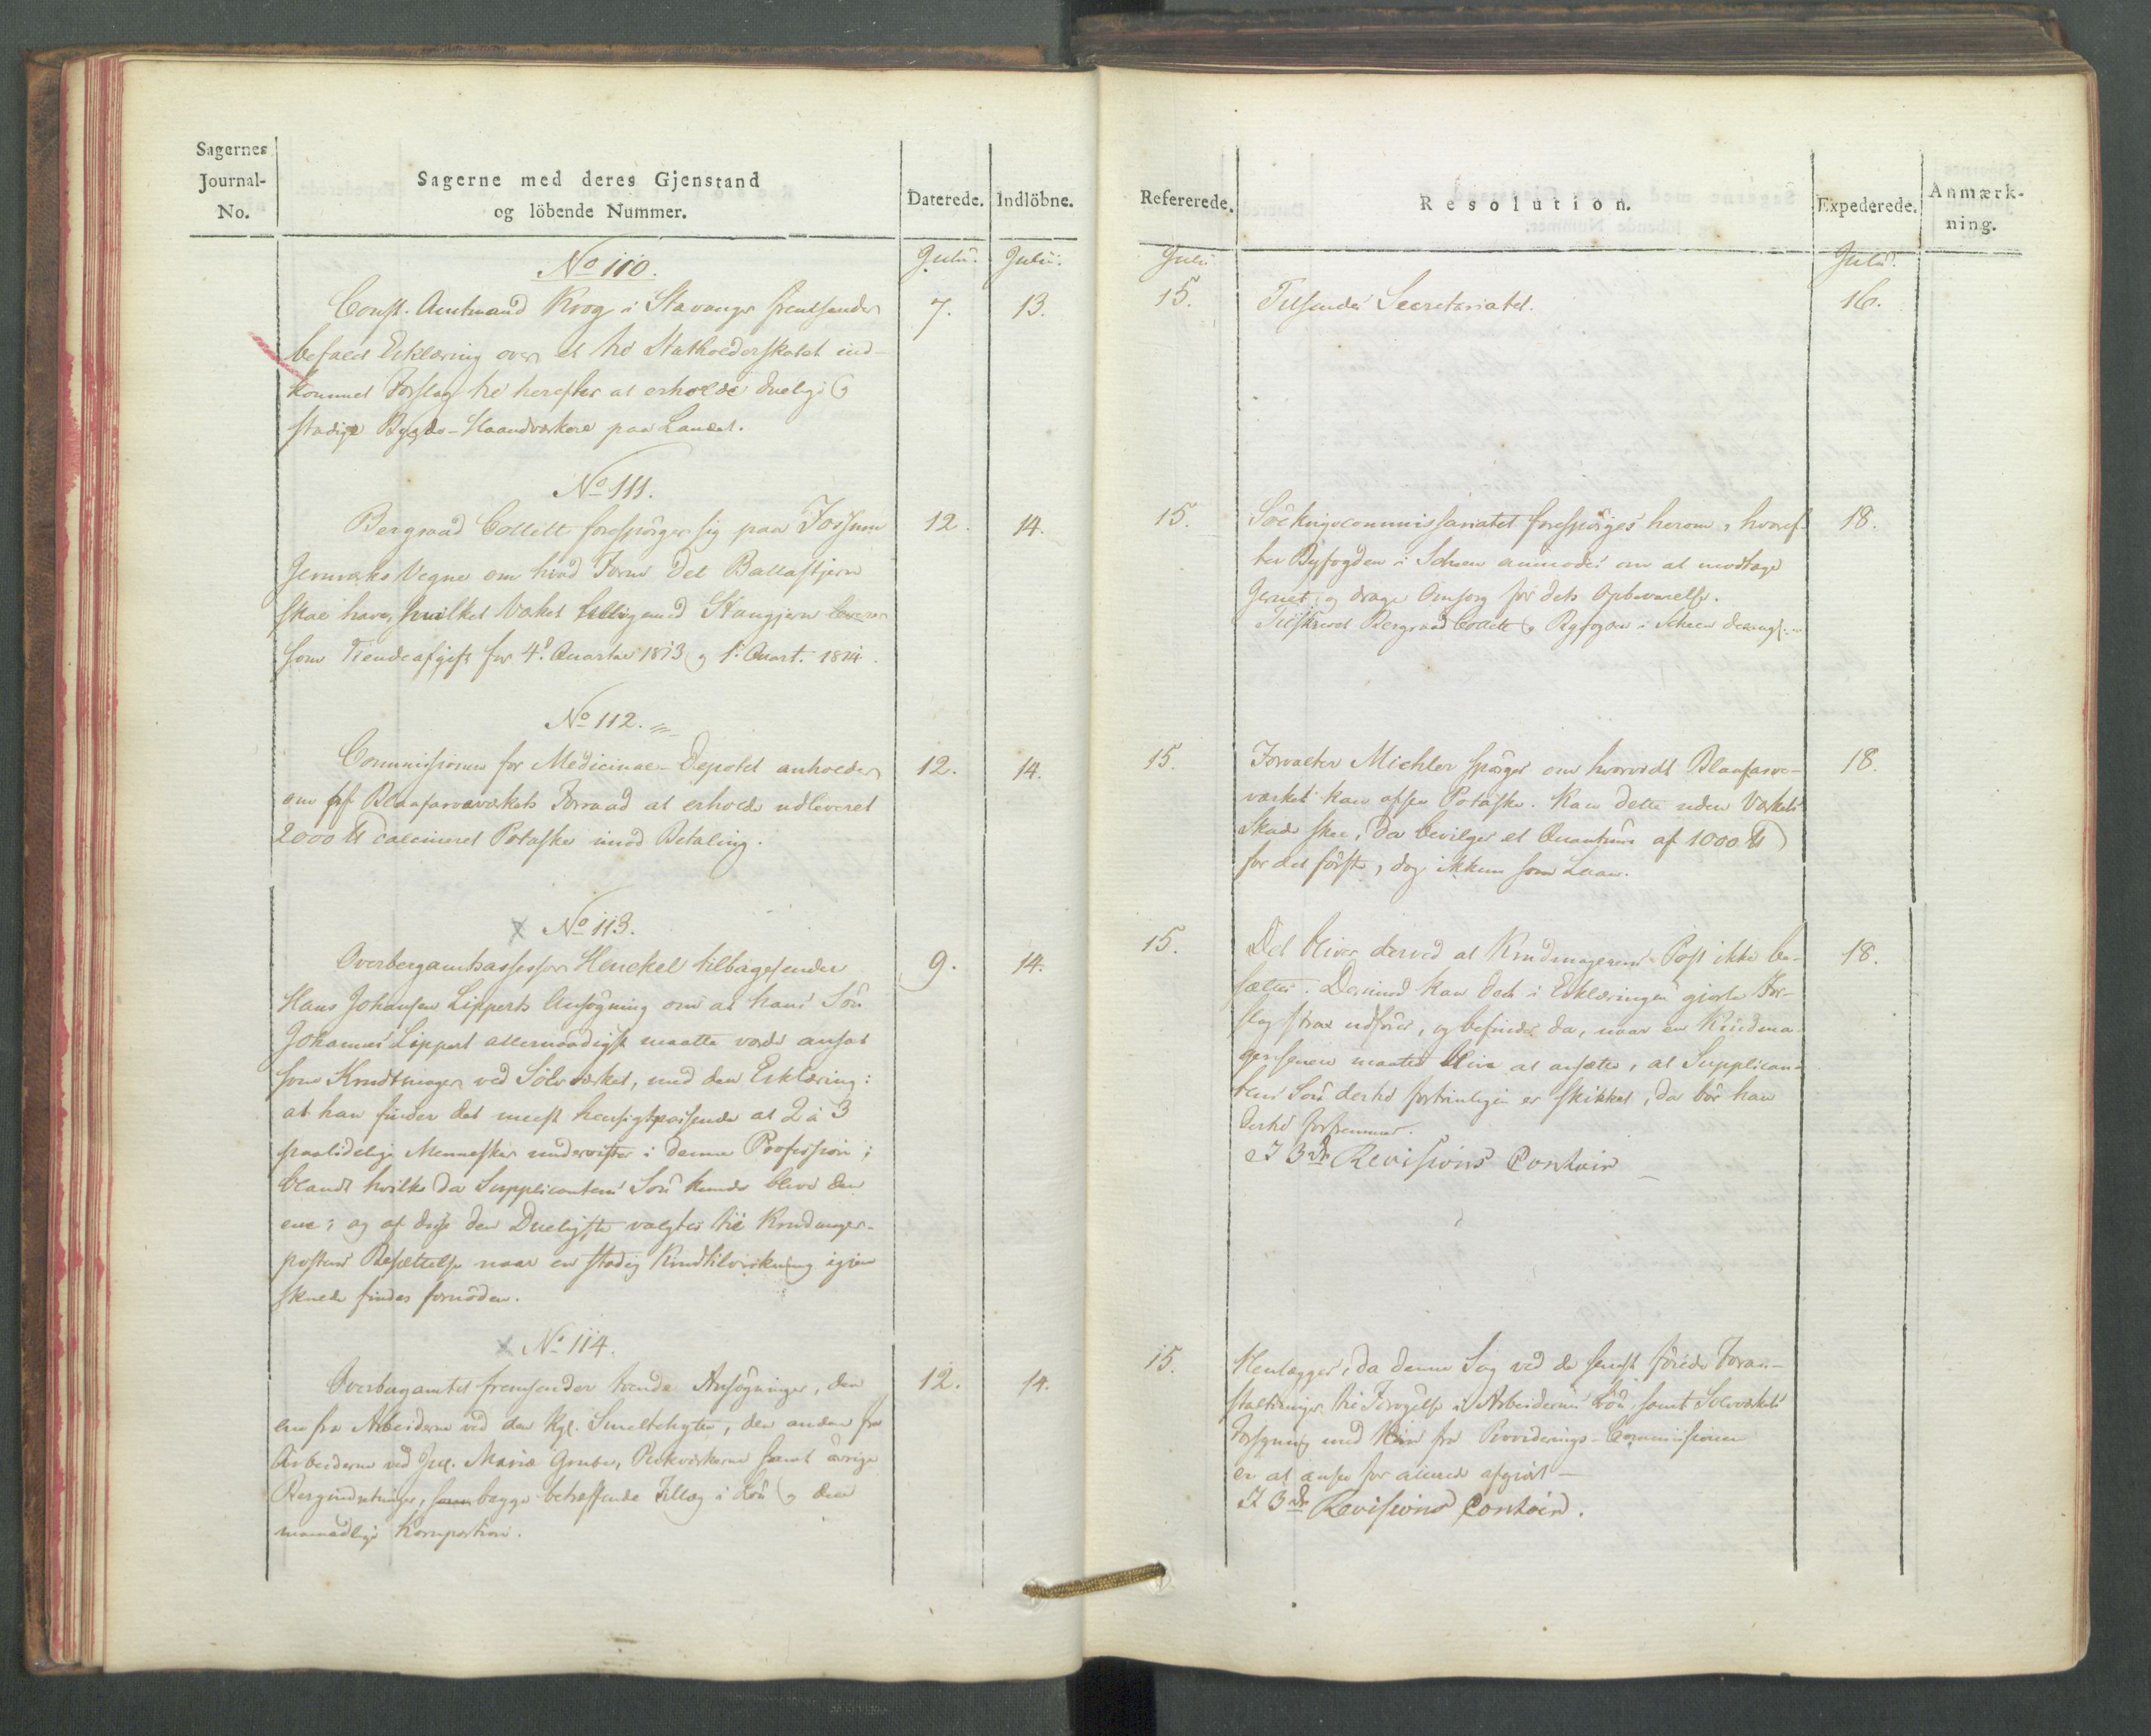 Sagernes
Journal-
No.
Sagerne med deres Gjenstand
og löbende Nummer.
Daterede.
Indlöbne.
Julii.
Julii.
No 110.
Const. Amtmand Krog i Stavanger fremsender
7.
13.
befalet Erklæring over et til Statholderskabet ind-
kommet Forslag til herefter at erholde duelige og
stadige Bygds-Haandværkere paa Landet.
No 111.
Bergraad Collett forespörger sig paa Fossum
12.
14.
Jernværks Vegne om hvad Form det Ballastjern
skal have, hvilket Værket tilligemed Stangjern leverer
som Tiendeafgift for 4de Quartal 1813 og 1ste Quart. 1814.
No 112.
Commissionen for Medicinal-Depotet anholder
12.
14.
om af Blaafarveværkets Forraad at erholde udleveret
2000 ℔ calcineret Potaske imod Betaling.
No 113.
Overbergamtsassessor Henckel tilbagesender
9.
14.
Hans Johansen Lipperts Ansögning om at hans Sön
Johannes Lippert allernaadigst maatte vorde ansat
som Krudtmager ved Sölvværket, med den Erklæring:
at han finder det meest hensigtpassende at 2 à 3
paalidelige Mennesker undervistes i denne Profession;
blandt hvilke da Supplicantens Sön kunde blive den
ene; og af disse den Dueligste valgtes til Krudmager-
postens Besættelse naar en stadig Krudtilvirkning igjen
skulde findes fornöden.
No 114.
Overbergamtet fremsender tvende Ansögninger, den
12.
14.
ene fra Arbeiderne ved den Kgl. Smeltehytte, den anden fra
Arbeiderne ved Jul. Maria Grube, Pukværkerne samt övrige
Bergindretninger, begge betræffende Tillæg i Lön og den
maanedlige Kornportion.
Refererede.
Resolution.
Expederede.
Anmærk-
ning.
Julii
Julii.
15.
Tilsendes Secretariatet.
16.
15.
Söekrigscommissariatet forespörges herom, hvoref-
18.
ter Byfogden i Scheen anmodes om at modtage
Jernet og drage Omsorg for dets Opbevarelse.
Tilskrevet Bergraad Collett og Byfogden i Scheen
15.
Forvalter Michler spörges om hvorvidt Blaafarve-
18.
værket kan afsee Potaske. Kan dette uden Værkets
Skade skee, da bevilges et Quantum af 1000 ℔
for det förste, dog ikkun som Laan.
15.
Det bliver derved at Krudmagerens Post ikke be-
18.
sættes. Derimod kan det i Erklæringen gjorte For-
slag strax udföres, og befindes da, naar en Krudma
ger senere maatte blive at ansætte, at Supplican-
tens Sön dertil fortrinligen er skikket, da bör han
dertil forfremmes.
I 3die Revisions Contoir
15.
Henlægges, da denne Sag ved de senest föiede Foran-
staltninger til Forögelse i Arbeidernes Lön, samt Sölvværkets
Forsyning med Korn fra Provi­derings-Commissionen
er at ansee for allerede afgjort —
I 3die Revisions Contoir.